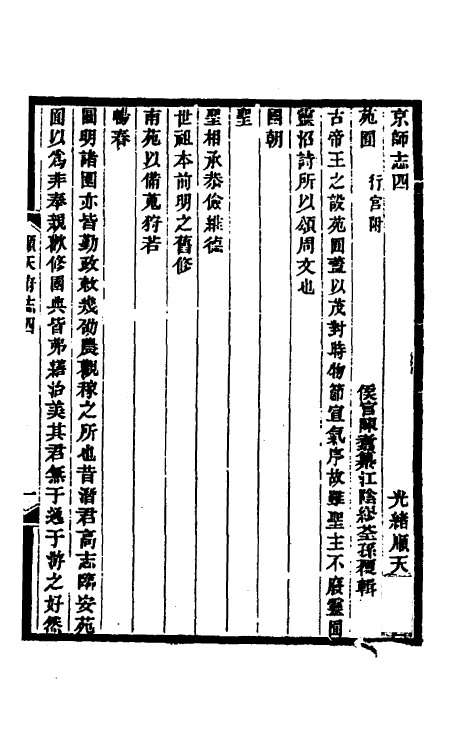 京師志四 光緒順天
苑囿 行宮附 侯官陳衮纂江陰繆荃孫覆輯
古帝王之設苑囿蓋以茂對時物節宣氣序故雖聖主不廢靈囿
靈沼詩所以頌周文也
國朝
聖
聖相承恭儉維德
世祖本前明之舊修
南苑以備蒐狩若
暢春
圓明諸園亦皆勤政敕幾劭農觀稼之所也昔潛君高志臨安苑
囿以為非奉親歟修國典皆弗繕治美其君無于逸于游之好然
順天府志四 一